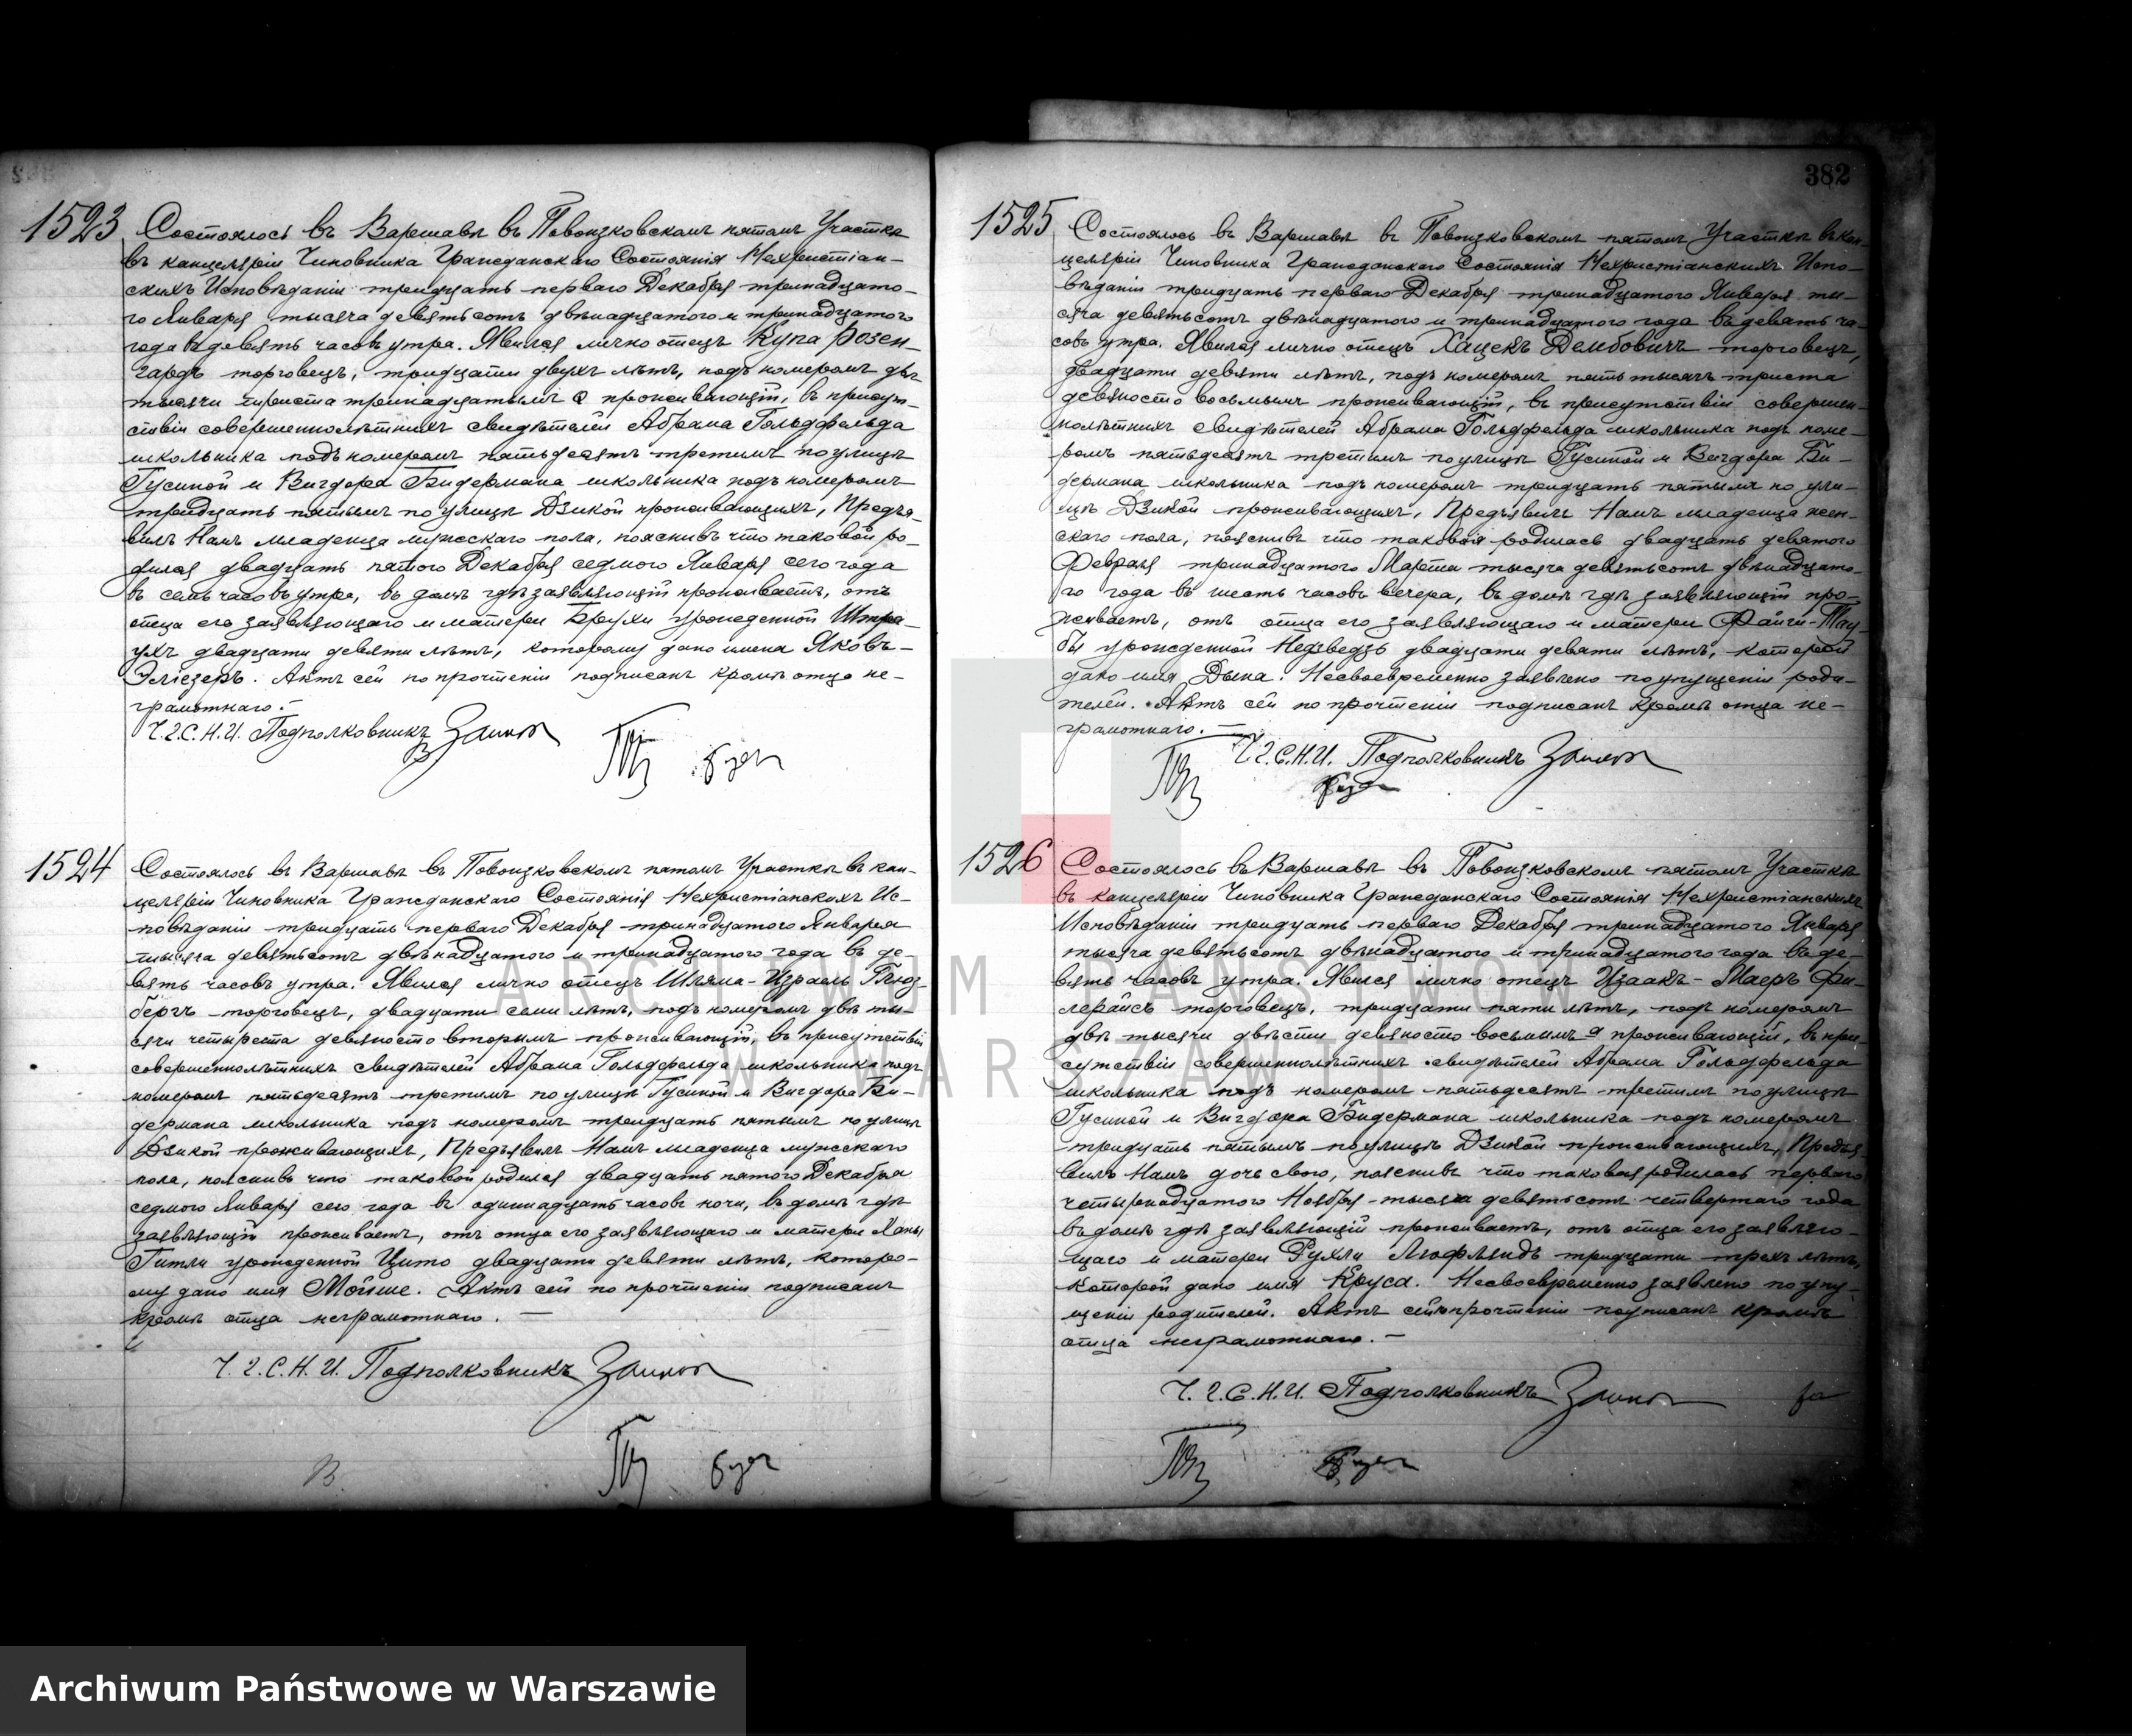 1523
Состоялось въ Варшавѣ въ Повонзковскомъ пятомъ Участкѣ
въ канцеляріи Чиновника Гражданскаго Состоянія Нехристіан-
скихъ Исповѣданій тридцать перваго Декабря тринадцато-
го Января тысяча девятьсотъ двѣнадцатого и тринадцатого
года въ девять часовъ утра. Явился лично отецъ Купа Розен-
гардъ торговецъ, тридцати двухъ лѣтъ, подъ номеромъ двѣ
тысячи триста тринадцатымъ проживающій, въ присут-
ствіи совершеннолѣтнихъ свидѣтелей Абрама Гольдфельда
школьника подъ номеромъ пятьдесятъ третимъ по улицѣ
Гусиной и Вигдора Бидермана школьника подъ номеромъ
тридцать пятымъ по улицѣ Дзикой проживающихъ, Предъя-
вилъ Намъ младенца мужскаго пола, пояснивъ что таковой ро-
дился двадцать пятого Декабря седмого Января сего года
въ семь часовъ утра, въ домѣ гдѣ заявляющій проживаетъ, отъ
отца его заявляющаго и матери Брухи урожденной Штра-
ухъ двадцати девяти лѣтъ, которому дано имена Яковъ-
Эліезеръ. Актъ сей по прочтеніи подписанъ кромѣ отца не-
грамотнаго.-
Ч.Г.С.Н.И. Подполковникъ
1524
Состоялось въ Варшавѣ въ Повонзковскомъ пятомъ Участкѣ въ кан-
целяріи Чиновника Гражданскаго Состоянія Нехристіанскихъ Ис-
повѣданій тридцать перваго Декабря тринадцатого Января
тысяча девятьсотъ двѣнадцатого и тринадцатого года въ де-
вять часовъ утра. Явился лично отецъ Шляма-Израель
бергъ торговецъ, двадцати семи лѣтъ, подъ номеромъ двѣ ты-
сячи четыреста девяносто вторымъ проживающій, въ присутствіи
совершеннолѣтнихъ свидѣтелей Абрама Гольдфельда школьника подъ
номеромъ пятьдесятъ третимъ по улицѣ Гусиной и Вигдора Би-
дермана школьника подъ номеромъ тридцать пятымъ по улицѣ
Дзикой проживающихъ, Предъявилъ Намъ младенца мужскаго
пола, пояснивъ что таковой родился двадцать пятого Декабря
седмого Января сего года въ одиннадцать часовъ ночи, въ домѣ гдѣ
заявляющій проживаетъ, отъ отца его заявляющаго и матери Ханы
Гитли урожденной Цито двадцати девяти лѣтъ, которо-
му дано имя Мойше. Актъ сей по прочтеніи подписанъ
кромѣ отца неграмотнаго.—
Ч.Г.С.Н.И. Подполковникъ
382
1525
Состоялось въ Варшавѣ въ Повонзковскомъ пятомъ Участкѣ въ кан-
целяріи Чиновника Гражданскаго Состоянія Нехристіанскихъ Испо-
вѣданій тридцать перваго Декабря тринадцатого Января ты-
сяча девятьсотъ двѣнадцатого и тринадцатого года въ девять ча-
совъ утра. Явился лично отецъ Хацекъ Дембовичъ торговецъ,
двадцати девяти лѣтъ, подъ номеромъ пять тысячъ триста
девяносто восьмымъ проживающій, въ присутствіи совершен-
нолѣтнихъ свидѣтелей Абрама Гольдфельда школьника подъ номе-
ромъ пятьдесятъ третимъ по улицѣ Гусиной и Вигдора Би-
дермана школьника подъ номеромъ тридцать пятымъ по ули-
цѣ Дзикой проживающихъ, Предъявилъ Намъ младенца жен-
скаго пола, пояснивъ что таковая родилась двадцать девятого
Февраля тринадцатого Марта тысяча девятьсотъ двѣнадцато-
го года въ шесть часовъ вечера, въ домѣ гдѣ заявляющій про-
живаетъ, отъ отца его заявляющаго и матери Файги-Тау-
бы урожденной Недзведзь двадцати девяти лѣтъ, которой
дано имя Дына. Несвоевременно заявлено по упущенію роди-
телей. Актъ сей по прочтеніи подписанъ кромѣ отца не-
грамотнаго.—
Ч.Г.С.Н.И. Подполковникъ
1526
Состоялось въ Варшавѣ въ Повонзковскомъ пятомъ Участкѣ
въ канцеляріи Чиновника Гражданскаго Состоянія Нехристіанскихъ
Исповѣданій тридцать перваго Декабря тринадцатого Января
тысяча девятьсотъ двѣнадцатого и тринадцатого года въ де-
вять часовъ утра. Явился лично отецъ Изаакъ-Маеръ Фи-
лерайсъ торговецъ, тридцати пяти лѣтъ, подъ номеромъ
двѣ тысячи двѣсти девяносто восьмымъ а проживающій, въ при-
сутствіи совершеннолѣтнихъ свидѣтелей Абрама Гольдфельда
школьника подъ номеромъ пятьдесятъ третимъ по улицѣ
Гусиной и Вигдора Бидермана школьника подъ номеромъ
тридцать пятымъ по улицѣ Дзикой проживающихъ, Предъя-
вилъ Намъ дочь свою, пояснивъ что таковая родилась перваго
четырнадцатого Ноября тысяча девятьсотъ четвертаго года
въ домѣ гдѣ заявляющій проживаетъ, отъ отца его заявляю-
щаго и матери Рухли Люфляндъ тридцати трехъ лѣтъ,
которой дано имя Круса. Несвоевременно заявлено по упу-
щенію родителей. Актъ сей по прочтеніи подписанъ кромѣ
отца неграмотнаго.—
Ч.Г.С.Н.И. Подполковникъ
ARCHIWUM PAŃSTWOWE
W WARSZAWIE
Archiwum Państwowe w Warszawie